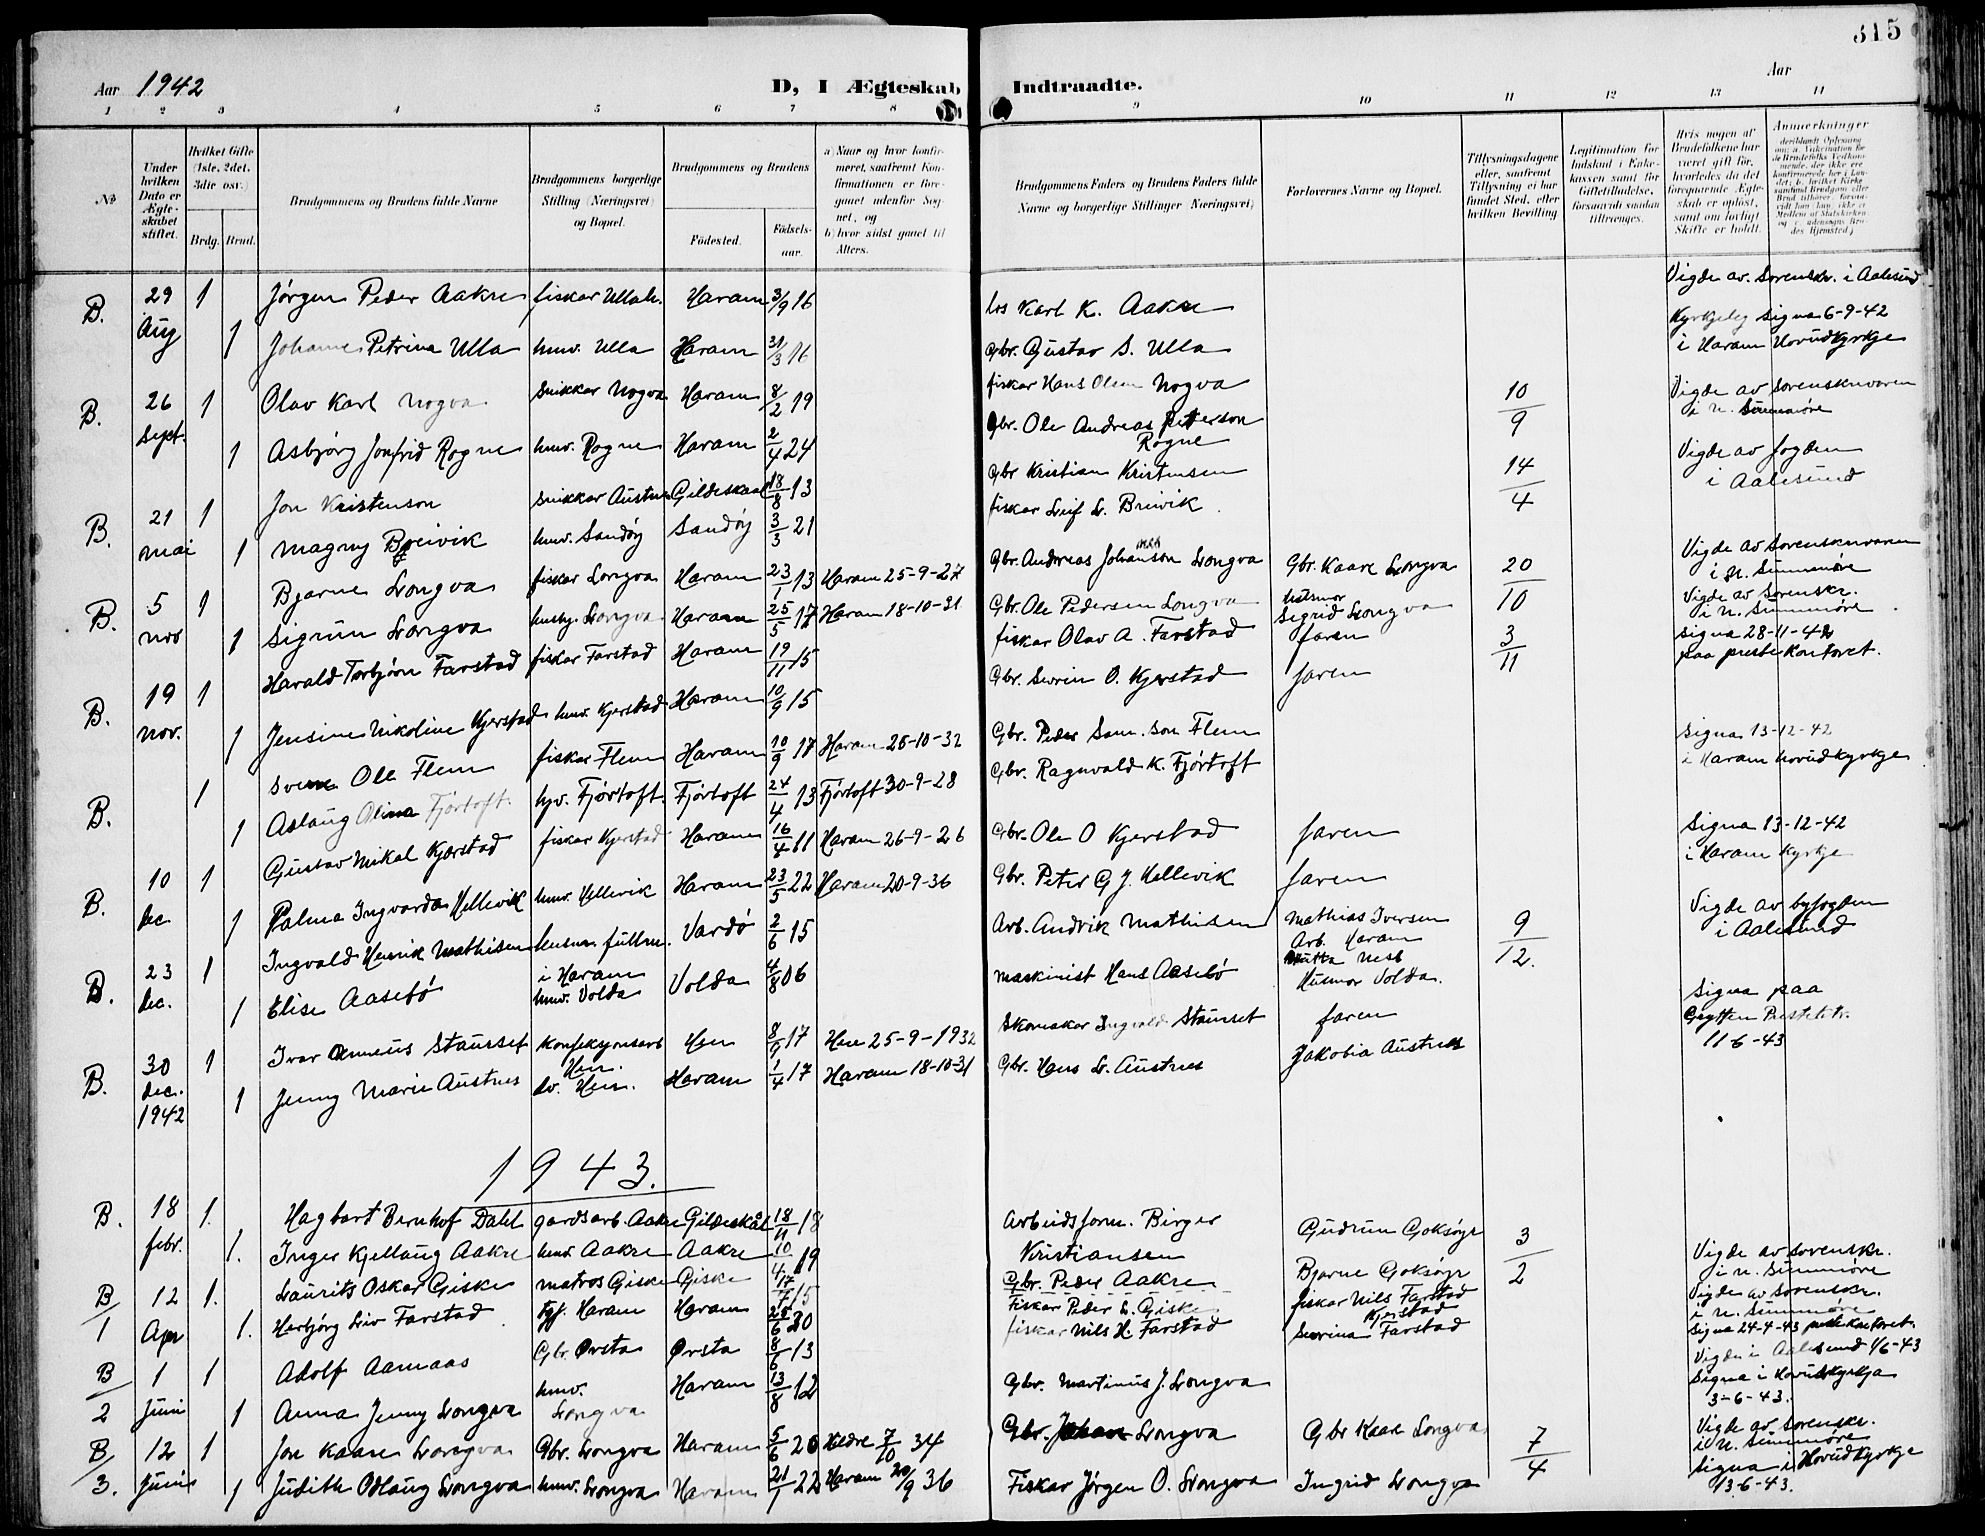 315
Aar 1942
D, I Ægteskab Indtraadte.
Aar
1 2 3 4 5 6 7 8 9 10 11 12 13 14
No.
Under hvilken Dato er Ægteskabet stiftet.
Hvilket Gifte (1ste, 2det, 3die osv.)
Brdg. Brud.
Brudgommens og Brudens fulde Navne
Brudgommens borgerlige Stilling (Næringsvei) og Bopæl.
Brudgommens og Brudens
Fødested. Fødselsaar.
a) Naar og hvor konfirmeret, saafremt Konfirmationen er foregaaet udenfor Sognet, og
b) hvor sidst gaaet til Alters.
Brudgommens Faders og Brudens Faders fulde Navne og borgerlige Stillinger (Næringsvei)
Forlovernes Navne og Bopæl.
Tillysningsdagene eller, saafremt Tillysning ei har fundet Sted, efter hvilken Bevilling
Legitimation for Indskud i Enkekassen samt for Giftetilladelse, forsaavidt saadan tiltrænges.
Hvis nogen af Brudefolkene har været gift før, hvorledes da det foregaaende Ægteskab er opløst, samt om lovligt Skifte er holdt.
Anmerkninger
B. 29 Aug 1 Jørgen Peder Aakre fiskar Ullah. Haram 3/9 16 Karl K. Aakre Vigde av Sorenskr. i Aalesund
1 Johanne Petrina Ulla hmv. Ulla Haram 31/3 16 Gbr. Gustav S. Ulla Kyrkjeleg signa 6-9-42 i Haram Hovudkyrkje
B. 26 Sept. 1 Olav Karl Nogva Snikkar Nogva Haram 8/2 19 fiskar Hans Olsen Nogva 10/9 Vigde av Sorenskrivaren i N. Sunnmøre
1 Asbjørg Jonfrid Rogne hmv. Rogne Haram 2/4 24 Gbr. Ole Andreas Petterson Rogne
B. 21 mai 1 Jon Kristenson Snikkar Austnes Gildeskaal 18/8 13 Gbr Kristian Kristensen 14/4 Vigde av fogden i Aalesund
1 Magny Breivik hmv. Sandøy Sandøy 3/3 21 fiskar Leif L. Breivik
B. 5 nov 1 Bjarne Longva fiskar Longva Haram 23/1 13 Haram 25-9-27 Gbr. Andreas Johanson Longva Gbr. Kaare Longva 20/10 Vigde av Sorenskrivaren i N. Sunnmøre
1 Sigrun Longva hushj. Longva Haram 25/5 17 Haram 18-10-31 Gbr. Ole Pedersen Longva husmor Sigrid Longva
B. 19 nov. 1 Harald Torbjørn Farstad fiskar Farstad Haram 19/11 15 fiskar Olav A. Farstad faren 3/11 Vigde av Sorenskr. i N. Sunnmøre
signa 28-11-42 paa prestekontoret.
1 Jensine Nikoline Kjerstad hmv. Kjerstad Haram 10/9 15 Gbr. Severin O. Kjerstad faren
B. 1 Svein Ole Flem fiskar Flem Haram 10/9 17 Haram 25-10-32 Gbr. Peder Sam.son Flem Signa 13-12-42 i Haram Hovudkyrkje
1 Aslaug Olina Fjørtoft hjv. Fjørtoft. Fjørtoft 24/4 13 Fjørtoft 30-9-28 Gbr. Ragnvald K. Fjørtoft
B. 10 dec 1 Gustav Mikal Kjerstad fiskar Kjerstad Haram 16/4 11 Haram 26-9-26 Gbr. Ole O Kjerstad faren Signa 13-12-42 i Haram Kyrkje
1 Palma Ingvarda Hellevik hmv. Hellevik Haram 23/5 22 Haram 20-9-36 Gbr. Peter G J. Hellevik faren
B. 23 dec. 1 Ingvald Henrik Mathisen fullm. i Haram Vardø 2/6 15 Arb. Andvik Mathisen Mathias Iversen Arb. Haram 9/12. Vigde av byfogden i Aalesund
1 Elise Aasebø hmv. Volda Volda 4/8 06 maskinist Hans Aasebø Husmor Volda.
B. 30 dec. 1942 1 Ivar Stavrset Konfeksjonsarb Hen. Hen 8/9 17 Hen 25-9-1932 Skomakar Ingvald Stavrset faren Signa paa Grytten Prestekt. 11-6-43
1 Jenny Marie Austnes Hen. Haram 1/4 17 Haram 18-10-31 Gbr. Hans L. Austnes Jakobia Austnes
1943.
B. 18 febr. 1. Hagbart Bernhof Dahl gardsarb. Aakre Gildeskål 18/11 18 Arbeidsform. Birger Kristiansen Gudrun Goksøyr 3/2 Vigde av Sorenskr. i N. Sunnmøre
1. Inger Kjellaug Aakre hmv Aakre Aakre 10/4 19 Gbr. Peder Aakre Bjarne Goksøyr
B/1 12 Apr 1. Laurits Oskar Giske matros Giske Giske 17/7 15 Fiskar Peder L. Giske fiskar Nils Farstad Vigde av Sorenskr. i N. Sunnmøre
1. Herbjørg Liv Farstad Haram Haram 28/6 20 fiskar Nils H. Farstad Kjerstad Severina Farstad Signa 24-4-43 Kontoret.
B/2 1 Juni 1 Adolf Aamaas Gbr. Ørsta Ørsta 8/6 13 Vigde i Aalesund 1/6-43
1 Anna Jenny Longva hmv. Longva Haram 13/8 12 Gbr. Martinus J. Longva Signa i Hovudkyrkja 3-6-43.
B/3. 12 Juni 1 Jon Kaare Longva Gbr. Longva Haram 5/6 20 Hildre 7/10 34 Gbr. Johan Longva Gbr Kaare Longva 7/4 Vigde av Sorenskr. i N. Sunnmøre
1 Judith Odlaug Longva hmv. Longva Haram 21/1 22 Haram 20/9 36 Fiskar Jørgen O. Longva Ingrid Longva Signa i Hovudkyrkje 13-6-43.